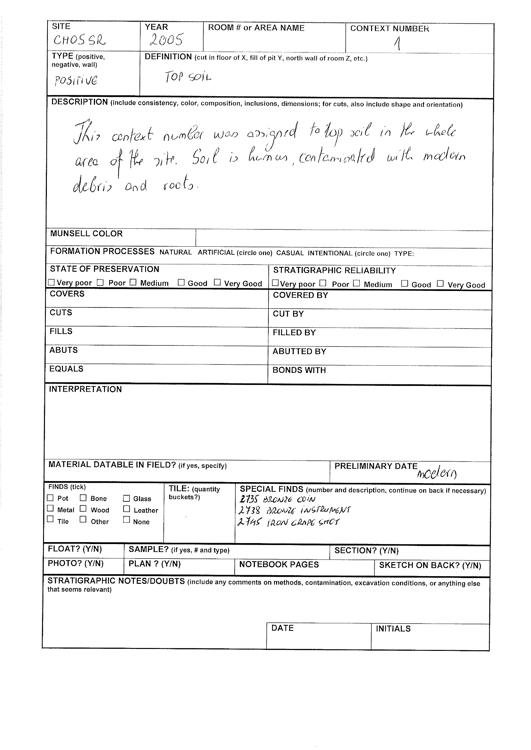 SITE
CHOSSR
YEAR
2005
ROOM # or AREA NAME
CONTEXT NUMBER
1
TYPE (positive, negative, wall)
POSITIVE
DEFINITION (cut in floor of X, fill of pit Y, north wall of room Z, etc.)
TOP SOIL
DESCRIPTION (include consistency, color, composition, inclusions, dimensions; for cuts, also include shape and orientation)
This context number was assigned to top soil in the whole
area of the site. Soil is humus, contaminated with modern
debris and roots.
MUNSELL COLOR
FORMATION PROCESSES NATURAL ARTIFICIAL (circle one) CASUAL INTENTIONAL (circle one) TYPE:
STATE OF PRESERVATION
☐ Very poor ☐ Poor ☐ Medium ☐ Good ☐ Very Good
STRATIGRAPHIC RELIABILITY
☐ Very poor ☐ Poor ☐ Medium ☐ Good ☐ Very Good
COVERS
COVERED BY
CUTS
CUT BY
FILLS
FILLED BY
ABUTS
ABUTTED BY
EQUALS
BONDS WITH
INTERPRETATION
MATERIAL DATABLE IN FIELD? (if yes, specify)
PRELIMINARY DATE
modern
FINDS (tick)
☐ Pot ☐ Bone ☐ Glass
☐ Metal ☐ Wood ☐ Leather
☐ Tile ☐ Other ☐ None
TILE: (quantity
buckets?)
SPECIAL FINDS (number and description, continue on back if necessary)
2735 BRONZE COIN
2738 BRONZE INSTRUMENT
2745 IRON GRAPE SHOT
FLOAT? (Y/N)
SAMPLE? (if yes, # and type)
SECTION? (Y/N)
PHOTO? (Y/N)
PLAN ? (Y/N)
NOTEBOOK PAGES
SKETCH ON BACK? (Y/N)
STRATIGRAPHIC NOTES/DOUBTS (include any comments on methods, contamination, excavation conditions, or anything else
that seems relevant)
DATE
INITIALS